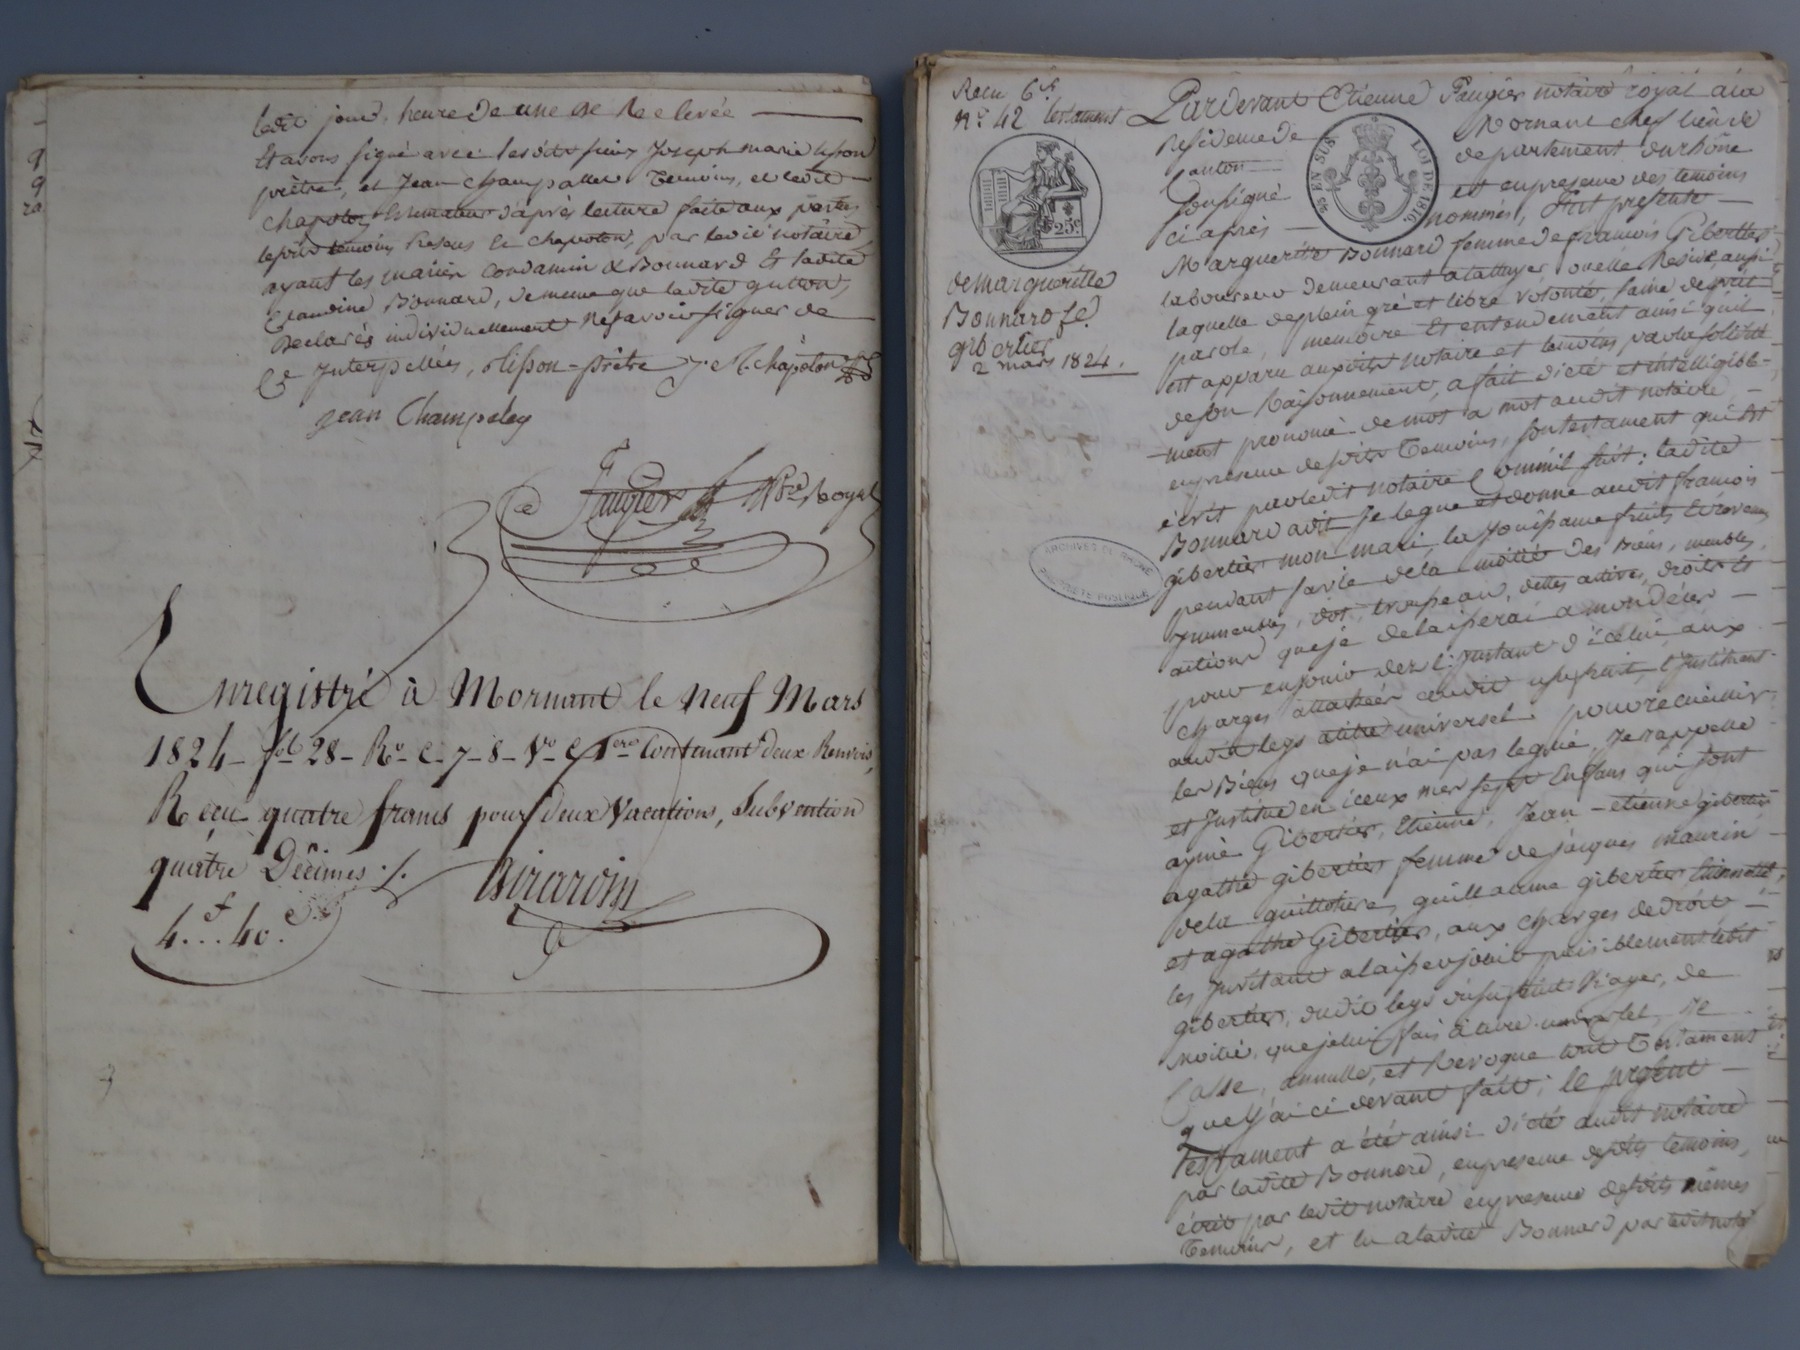 ledit jour, heure de une de Relevée
Et avons signé avec lesdits sieurs Joseph marie
prêtre, et Jean Champallet Temoins, et ledit
chapoton d'après lecture faite aux parties
lesdits temoins Presens le chapoton, par ledit notaire
ayant les mariés Condamin & Bonnard Et ladite
Claudine Bonnard, de meme que ladite guyton,
Declarés individuellement Ne savoir signer de
Ce Interpellées, prêtre J. M. Chapoton
Jean Champaley
Faugier Nre Royal
Enregistré à Mornant le Neuf Mars
1824 - fol 28 - Ro - C. 7 - 8 - Vo C 1ere Contenant deux Renvois,
Reçu quatre francs pour deux Vacations, Subvention
quatre Décimes ./.
4.f.. 40.c
Birardin
Recu 6f
No 42 testament
de margueritte
Bonnard fe.
gibertier
2 mars 1824.
25c
¼ EN SUS LOI DE 1816.
ARCHIVES DU RHONE
PROPRIETE PUBLIQUE
Pardevant Etienne Faugier notaire royal à la
Residence de Mornant chef lieu de
Canton departement du rhône
soussigné et en presence des temoins
ci après nommés, fut presente
Marguerite Bonnard femme de françois Gibertier
laboureur demeurant à ou elle Reside, aussi
laquelle de plein gré et libre volonté, saine d'esprit
parole, memoire Et entendement ainsi qu'il
est apparu auxdits notaire et temoins par la solidité
de son Raisonnement, a fait dicté et intelligible-
-ment prononcé de mot a mot audit notaire
en presence desdits Temoins, son testament qui Est
écrit par ledit notaire Comme suit: ladite
Bonnard a dit Je legue et donne audit françois
gibertier mon mari la Jouissance fruits Et revenus
pendant sa vie de la moitié des Biens, meubles,
Immeubles, dot, trousseau, dettes actives, droits Et
actions que je delaisserai a mon décès
pour en jouir dez l'Instant d'icelui, aux
charges attachées audit usufruit, l'Instituant
audit legs a titre universel pour recueillir
les Biens que je n'ai pas legué, Je rappelle
et Institue en iceux mes sept Enfans qui sont
aymé Gibertier, Etienne, Jean - etienne gibertier
agathe gibertier femme de jacques maurin
de la guillotiere, guillaume gibertier
et agathe Gibertier, aux charges de droit
les Invitant a laisser jouir paisiblement ledit
gibertier, dudit legs d'usufruit Viager, de
moitié, que je lui fais à titre universel, Je
Casse, annulle, et Revoque tout Testament
que J'ai ci devant fait; le present
Testament a été ainsi dicté audit notaire
par ladite Bonnard, en presence desdits temoins,
écrit par ledit notaire en presence desdits mêmes
Temoins, et lu a ladite Bonnard par ledit notaire